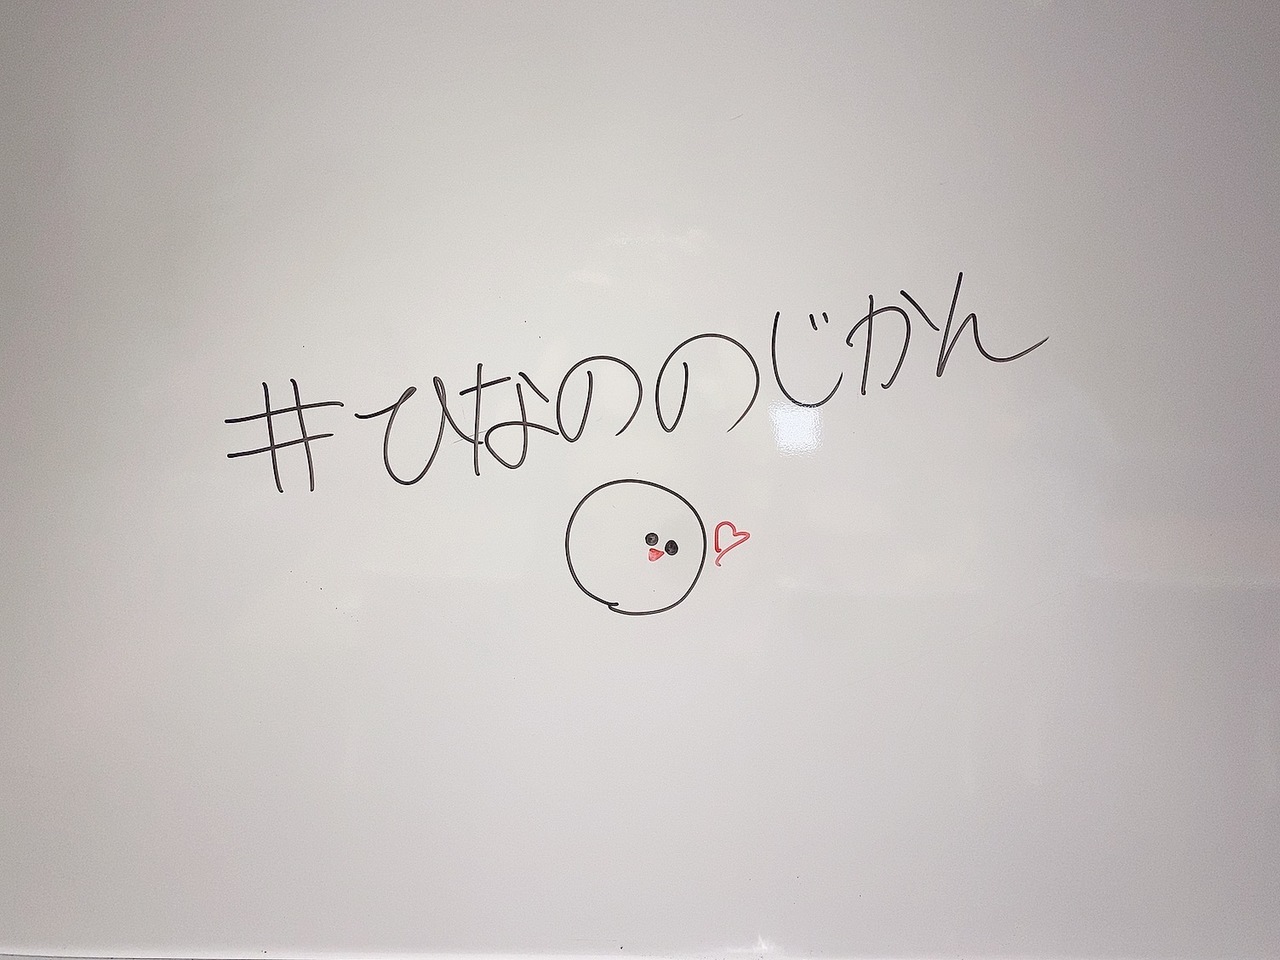 #ひなののじかん